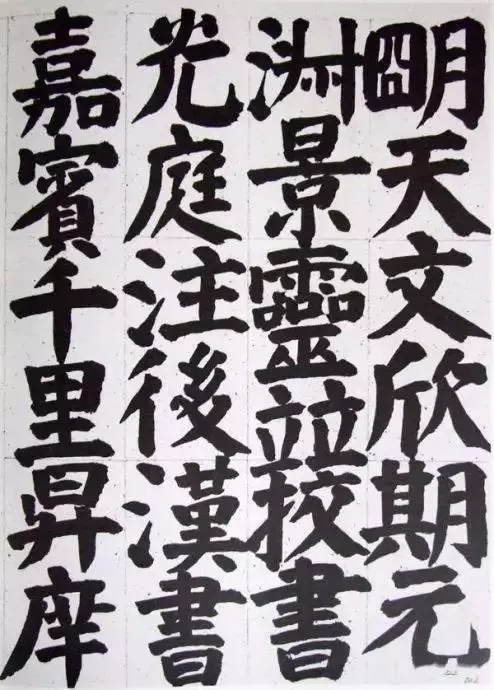 朙天文欣期元
洲景靈竝挍書
光庭注後漢書
嘉賓千里昇